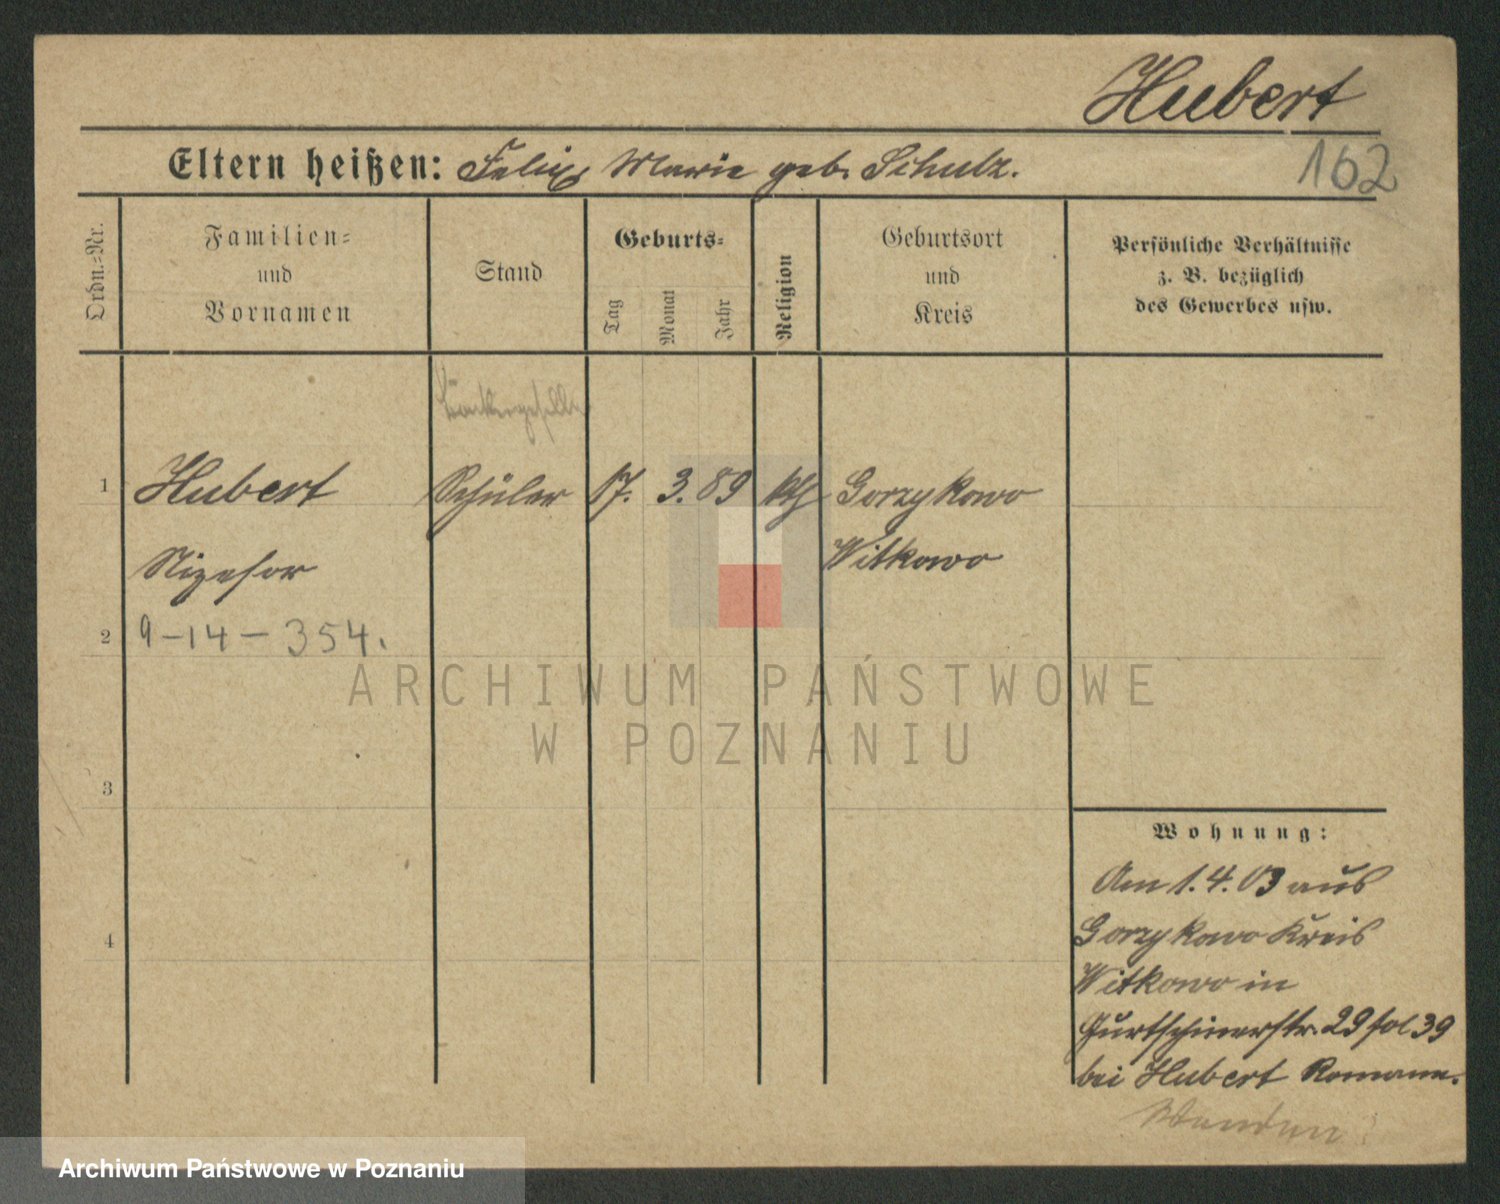 Hubert
Eltern heißen: Felix Marie geb. Schulz.
162
Ordn.=Nr.
Familien=
und
Vornamen
Stand
Geburts=
Tag
Monat
Jahr
Religion
Geburtsort
und
Kreis
Persönliche Verhältnisse
z. B. bezüglich
des Gewerbes usw.
1 Hubert Schüler 17. 3. 89 kth Gorzykowo
Nizefor Witkowo
2 9-14-354.
ARCHIWUM PAŃSTWOWE
W POZNANIU
3
Wohnung:
Am 1.4.03 aus
4 Gorzykowo Kreis
Witkowo in
29 fol 39
bei Hubert Romann.
Wenden
Archiwum Państwowe w Poznaniu